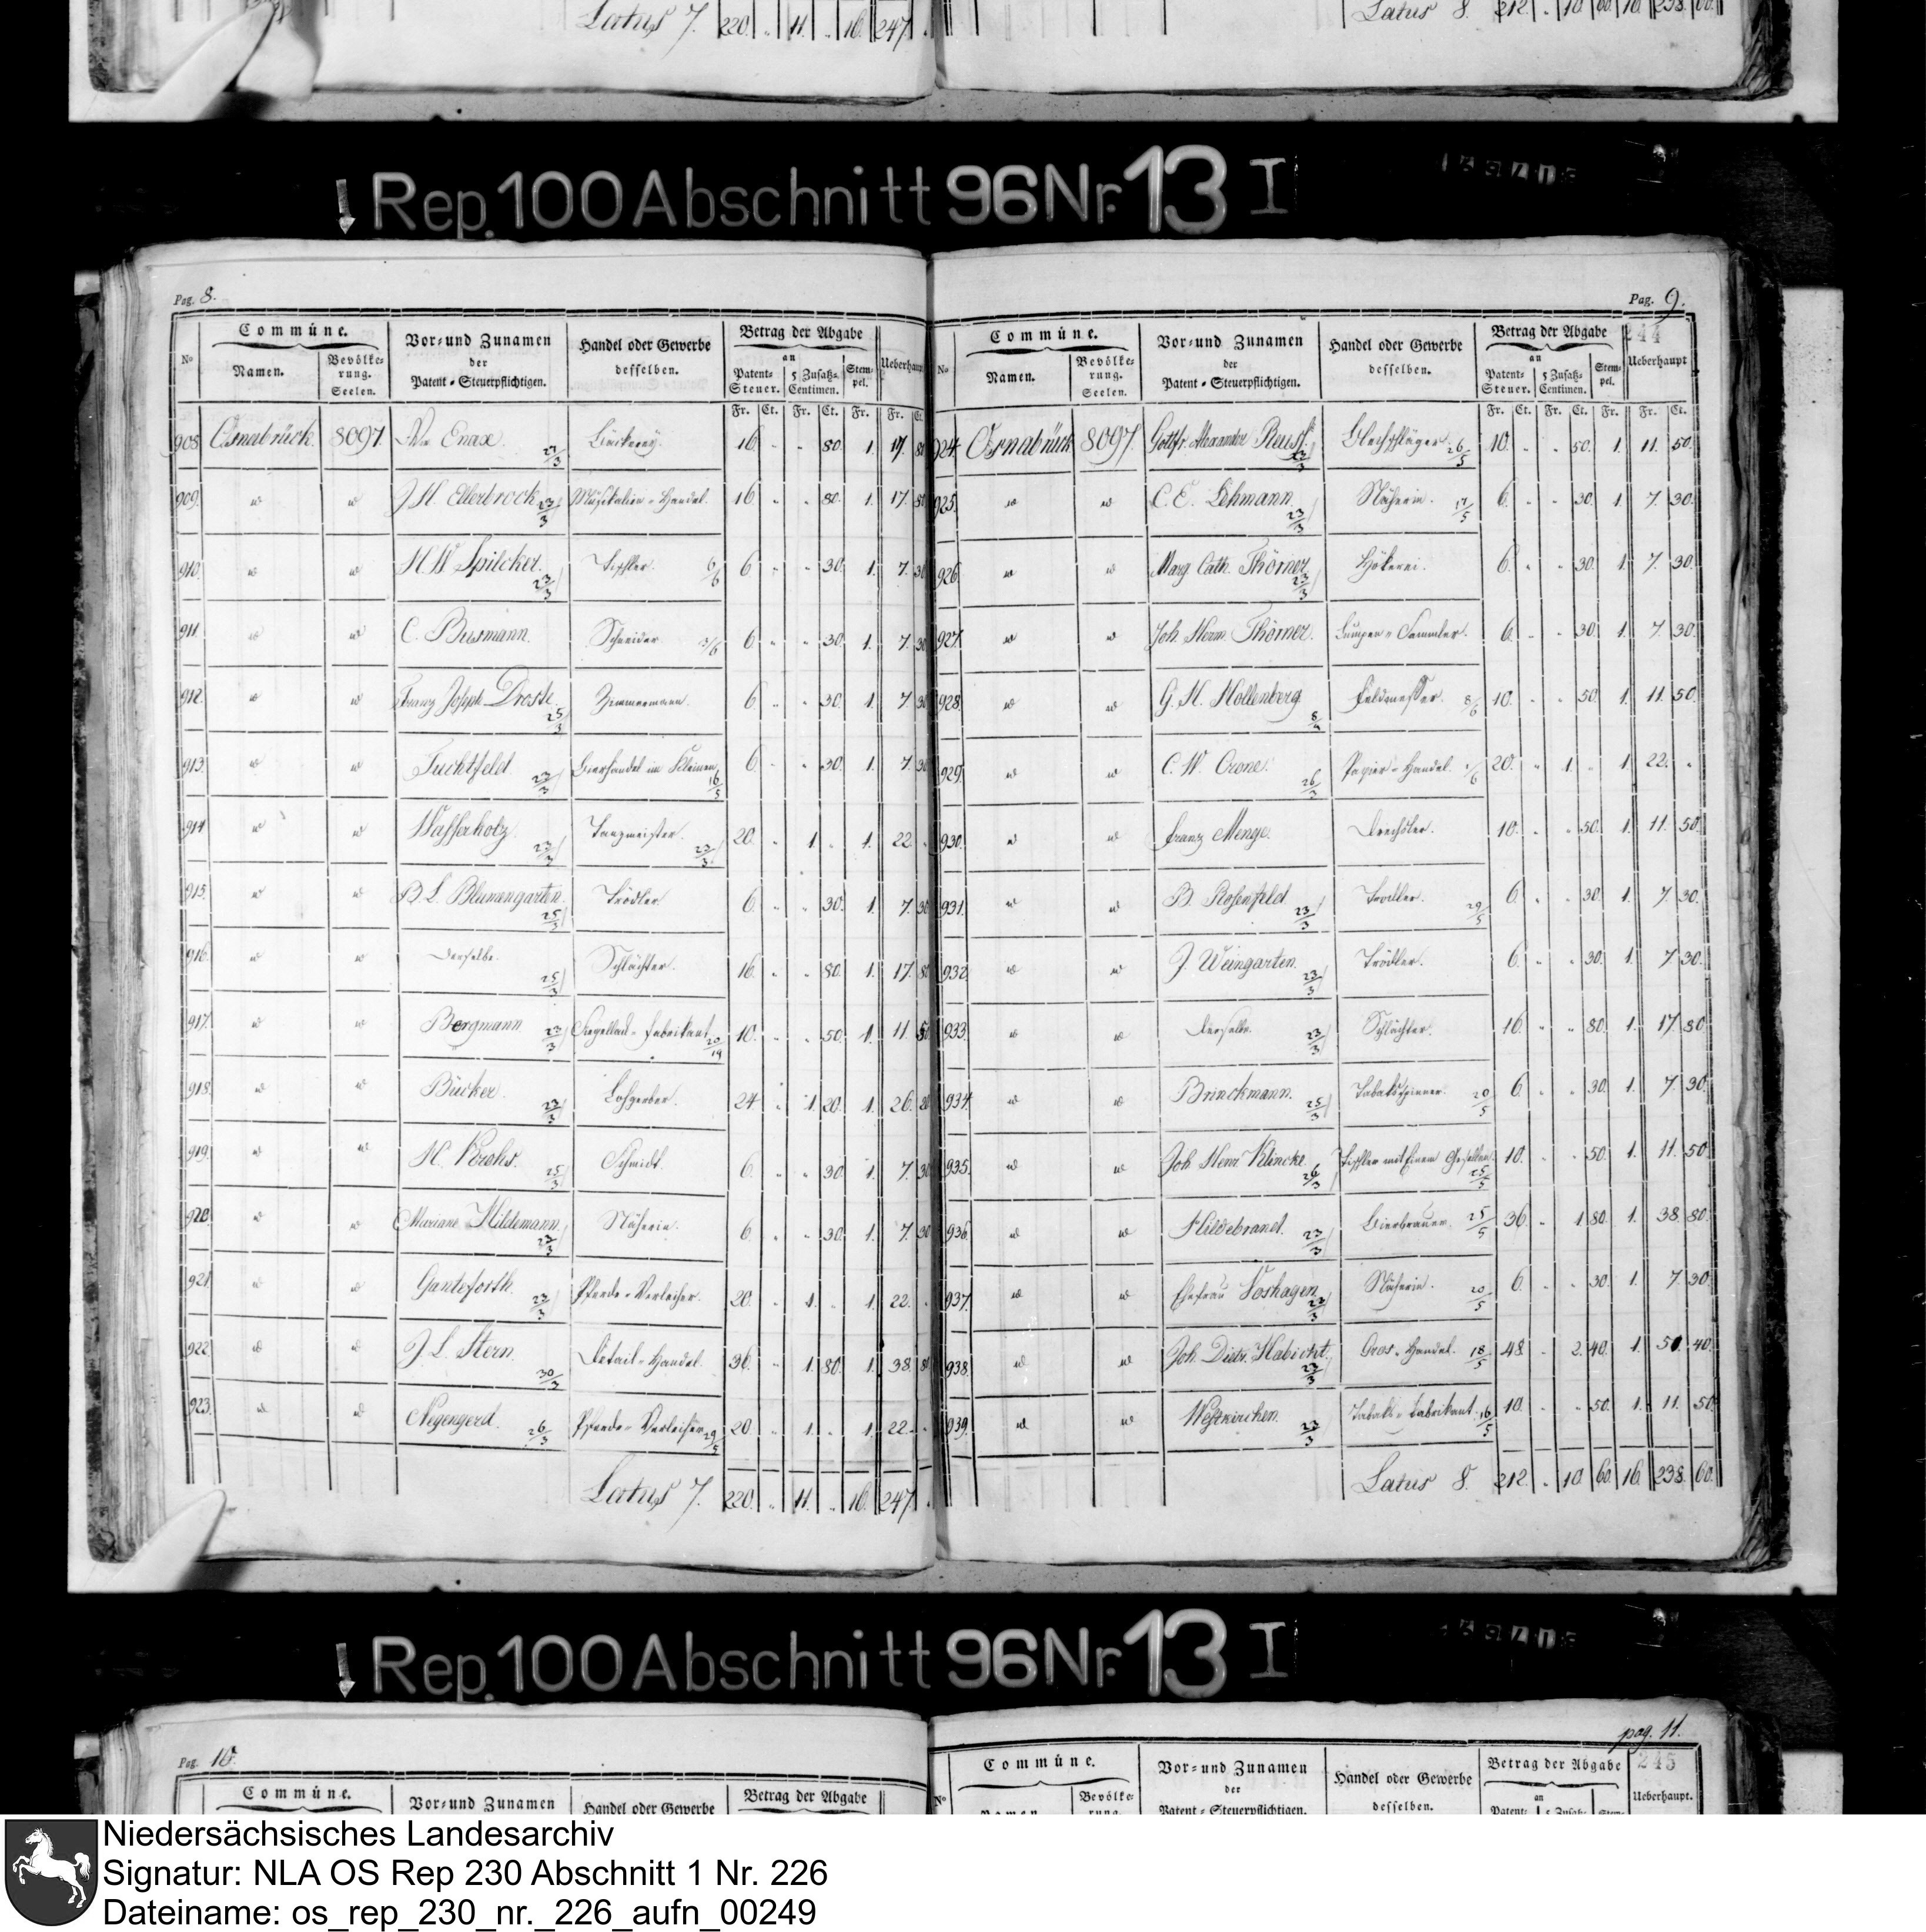 Latus 7. 220. " 11. " 16. 247. "
Latus 8. 212. " 10 60 16 238 60.
Rep. 100 Abschnitt 96 Nr. 13 I
Pag. 8.
Commúne. Vor= und Zunamen der Patent=Steuerpflichtigen. Handel oder Gewerbe desselben. Betrag der Abgabe
No Namen. Bevölkerung. Seelen. an Patent=Steuer. 5 Zusatz=Centimen. Stempel. Ueberhaupt
Fr. Ct. Fr. Ct. Fr. Fr. Ct.
908 Osnabrück. 8097. Enax. 23/3 16 " " 80. 1. 17. 80
909. " " J H. Ellerbrock 23/3 Musikalien=Handel. 16 " " 80. 1. 17. 80
910. " " H. W Spilcker. 23/3 Tischler. 6/6 6 " " 30. 1. 7. 30
911. " " C. Busmann. Schneider 3/6 6 " " 30. 1. 7. 30
912. " " Franz Joseph Droste. 25/3 Zimmermann. 6 " " 30. 1. 7. 30
913. " " Tuchtfeld 23/3 Bierhandel im Kleinen 16/5 6 " " 30. 1. 7. 30
914 " " Wasserholz. 23/3 Tanzmeister. 23/3 20. " 1. " 1. 22. "
915. " " B. L. Blumengarten. 25/3 Trödler 6. " " 30. 1. 7. 30
916. " " Derselbe. 25/3 Schlächter. 16. " " 80. 1. 17. 80
917. " " Bergmann 23/3 Siegellack=Fabrikant. 10. " " 50. 1. 11. 50.
918. " " Bücker. 23/3 Lohgerber. 24 " 1. 20. 1. 26. 20
919. " " 25/3 Schmidt. 6. " " 30. 1. 7. 30
920. " " Mariane Hildemann 23/3 Näherin. 6. " " 30. 1. 7. 30
921 " " Ganteforth. 23/3 Pferde=Verleiher. 20. " 1. " 1. 22. "
922 " " J. L. Stern. 30/3 Detail=Handel. 36. " 1. 80. 1. 38. 80
923. " " Negengerd. 26/3 Pferde=Verleiher 29/5 20. " 1. " 1. 22. "
Latus 7. 220. " 11. " 16. 247. "
Pag. 9.
244
Commúne. Vor= und Zunamen der Patent=Steuerpflichtigen. Handel oder Gewerbe desselben. Betrag der Abgabe
No Namen. Bevölkerung. Seelen. an Patent=Steuer. 5 Zusatz=Centimen. Stempel. Ueberhaupt
Fr. Ct. Fr. Ct. Fr. Fr. Ct.
924. Osnabrück 8097. Gottfr. Alexander 23/3 Blechschläger. 26/5 10. " " 50. 1. 11. 50.
925. " " C. E. Lehmann. 23/3 Näherin. 17/5 6. " " 30. 1. 7. 30.
926. " " Marg Cath. Thörner 23/3 Hökerei. 6. " " 30. 1. 7. 30.
927. " " Joh. Herm. Thörner. Lumpen=Sammler. 6. " " 30. 1. 7. 30.
928. " " G. H. Hollenberg Feldmesser. 8/6 10. " " 50. 1. 11. 50.
929. " " C. W. Crone. 26/3 Papier=Handel. 20. " 1. " 1. 22. "
930. " " Franz Menge. Drechsler. 10. " " 50. 1. 11. 50.
931. " " B. Rosenfeld 23/3 Trödler. 29/5 6. " " 30. 1. 7. 30.
932. " " J. Weingarten. 23/3 Trödler. 6. " " 30. 1. 7 30.
933. " " Derselbe. 23/3 Schlächter. 16. " " 80. 1. 17. 80
934. " " Brinckmann. 25/3 Tabakspinner. 20/5 6. " " 30. 1. 7. 30.
935. " " Joh. Henr Klincke. 26/3 Tischler mit Einem Gesellen. 25/5 10. " " 50. 1. 11. 50
936. " " Hildebrand. 23/3 Bierbrauer. 25/5 36. " 1. 80. 1. 38. 80.
937. " " Ehefrau Voshagen 23/3 Näherin. 20/5 6. " " 30. 1. 7. 30.
938. " " Joh. Dietr. Habicht 23/3 Gros=Handel. 18/5 48. " 2. 40. 1. 51. 40.
939. " " Westkirchen. 23/3 Tabaks=Fabrikant. 16/5 10. " " 50. 1. 11. 50.
Latus 8. 212. " 10 60 16 238. 60.
Rep. 100 Abschnitt 96 Nr. 13 I
Pag. 10.
Commúne. Vor= und Zunamen Handel oder Gewerbe Betrag der Abgabe
pag. 11.
245
Commúne. Vor= und Zunamen der Patent=Steuerpflichtigen. Handel oder Gewerbe desselben. Betrag der Abgabe an Ueberhaupt.
Niedersächsisches Landesarchiv
Signatur: NLA OS Rep 230 Abschnitt 1 Nr. 226
Dateiname: os_rep_230_nr._226_aufn_00249